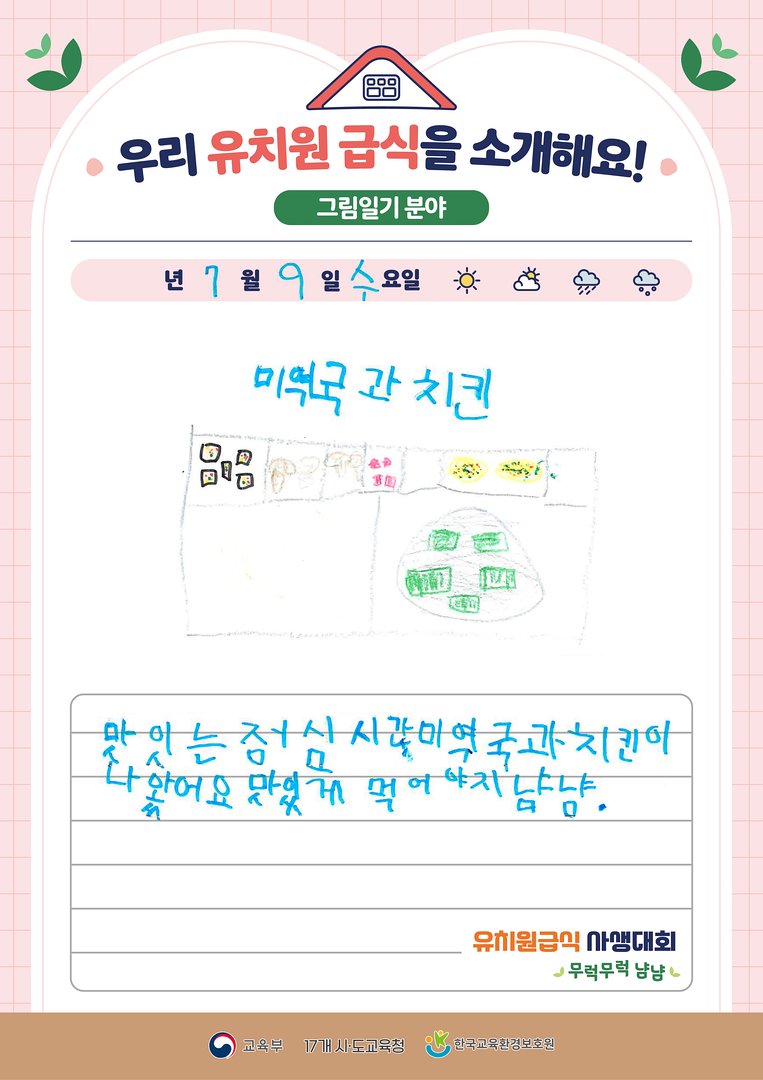 우리 유치원 급식을 소개해요!
그림일기 분야
년 7 월 9 일 수요일
미역국 과 치킨
맛 잇 는 점 심 시간 미 역 국 과 치킨이
나 왔어요 맛있게 먹 어 야지 냠냠.
유치원급식 사생대회
무럭무럭 냠냠
교육부 17개 시·도교육청 한국교육환경보호원